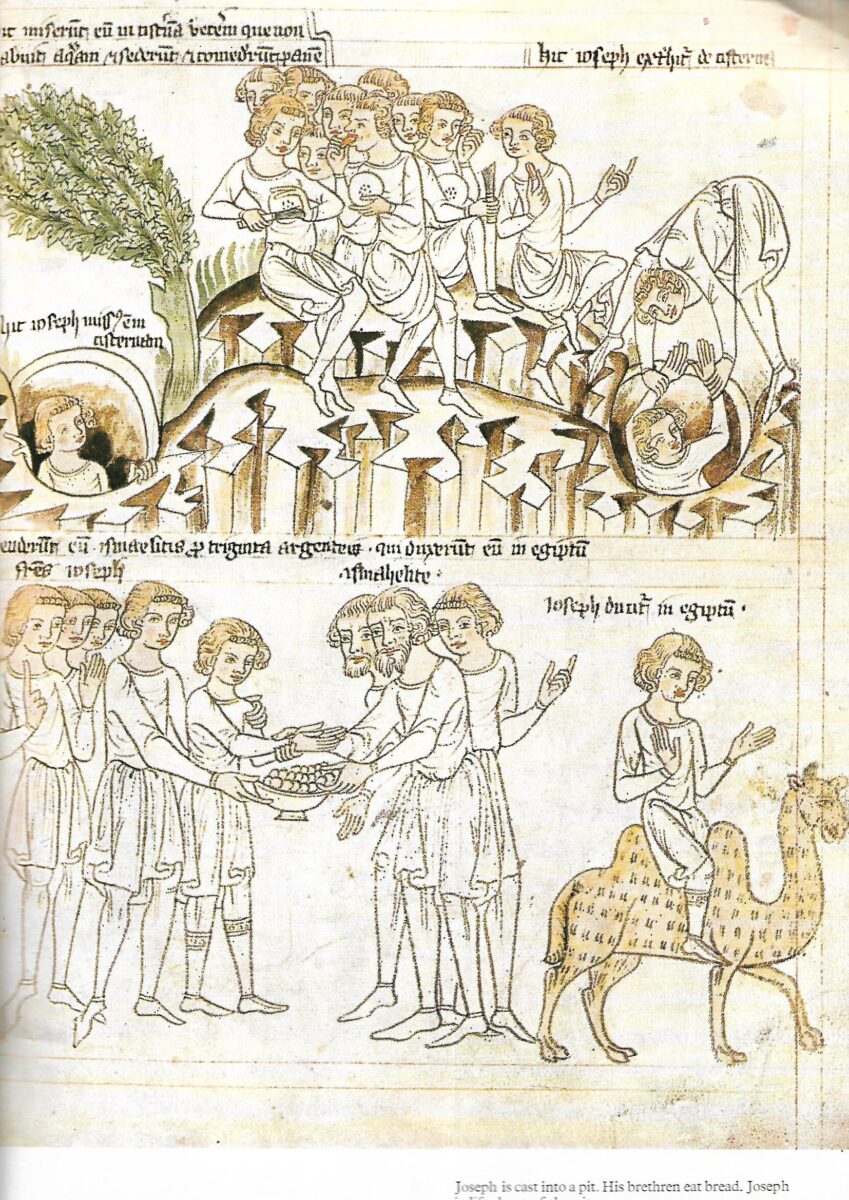 it miserūt eū in cistnā vetem que non
abuit aqam ⁊ sederūt ⁊ comedrūt panē
hic ioseph exthit de cisterna
hic ioseph miss ē in
cisternam
enderūt eū ismaelitis p triginta argenteis qui duxerūt eū in egiptū
fres ioseph
ismahelite
Ioseph ducit in egiptū
Joseph is cast into a pit. His brethren eat bread. Joseph